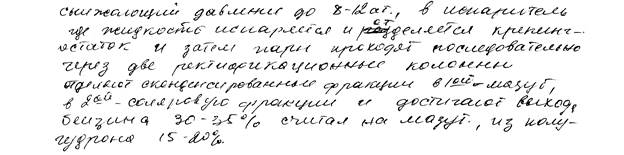 снижающий давление до 8-12 ат., в испаритель
где жидкость испаряется и отделяется крекинг-
остаток и затем пары проходят последовательно
через две ректификационные колонны
отделяют сконденсированные фракции в 1ой-мазут,
в 2ой-соляровую фракции и достигают выход
бензина 30-35% считая на мазут., из полу-
гудрона 15-20%.